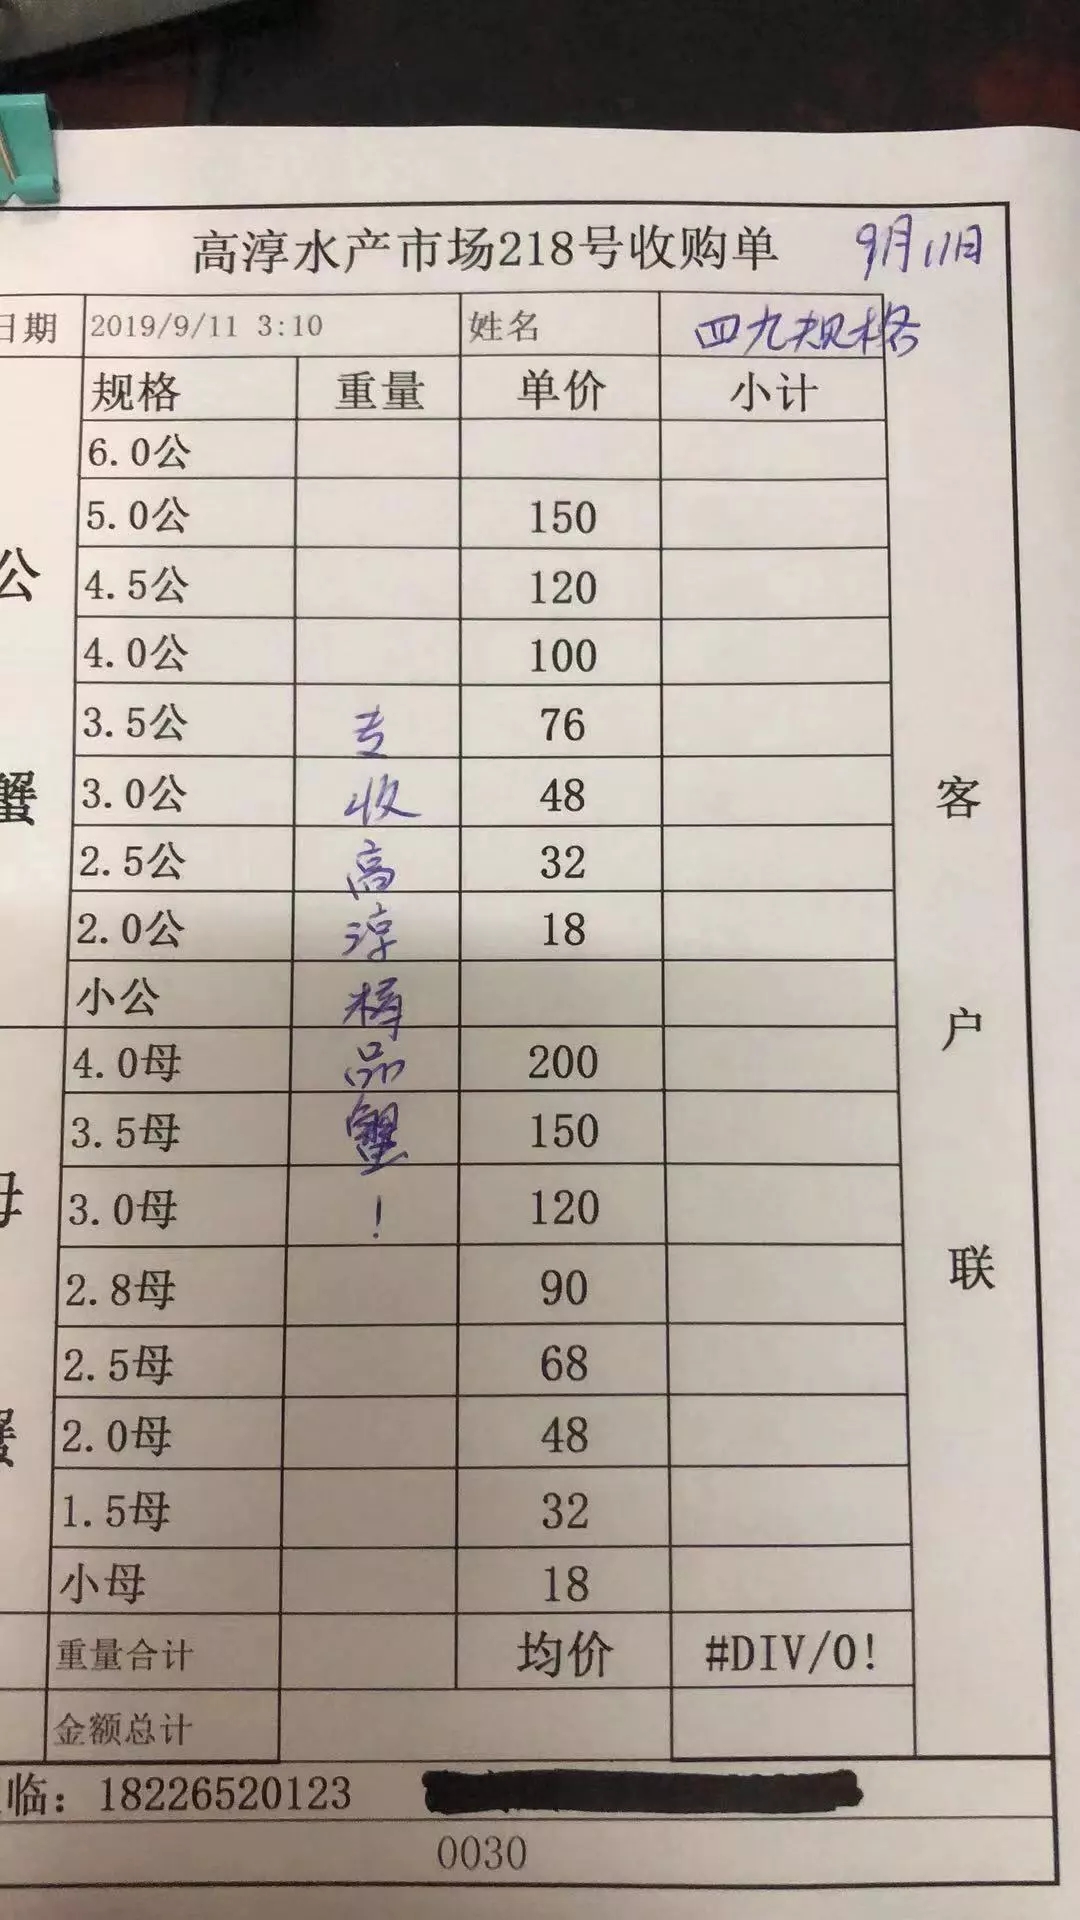 高淳水产市场218号收购单 9月11日
日期 2019/9/11 3:10 姓名 四九规格
规格 重量 单价 小计
6.0公
5.0公 150
4.5公 120
4.0公 100
3.5公 76
3.0公 48
2.5公 32
2.0公 18
小公
4.0母 200
3.5母 150
3.0母 120
2.8母 90
2.5母 68
2.0母 48
1.5母 32
小母 18
重量合计 均价 #DIV/0!
金额总计
临: 18226520123
0030
公蟹
母蟹
专收高淳精品蟹!
客户联